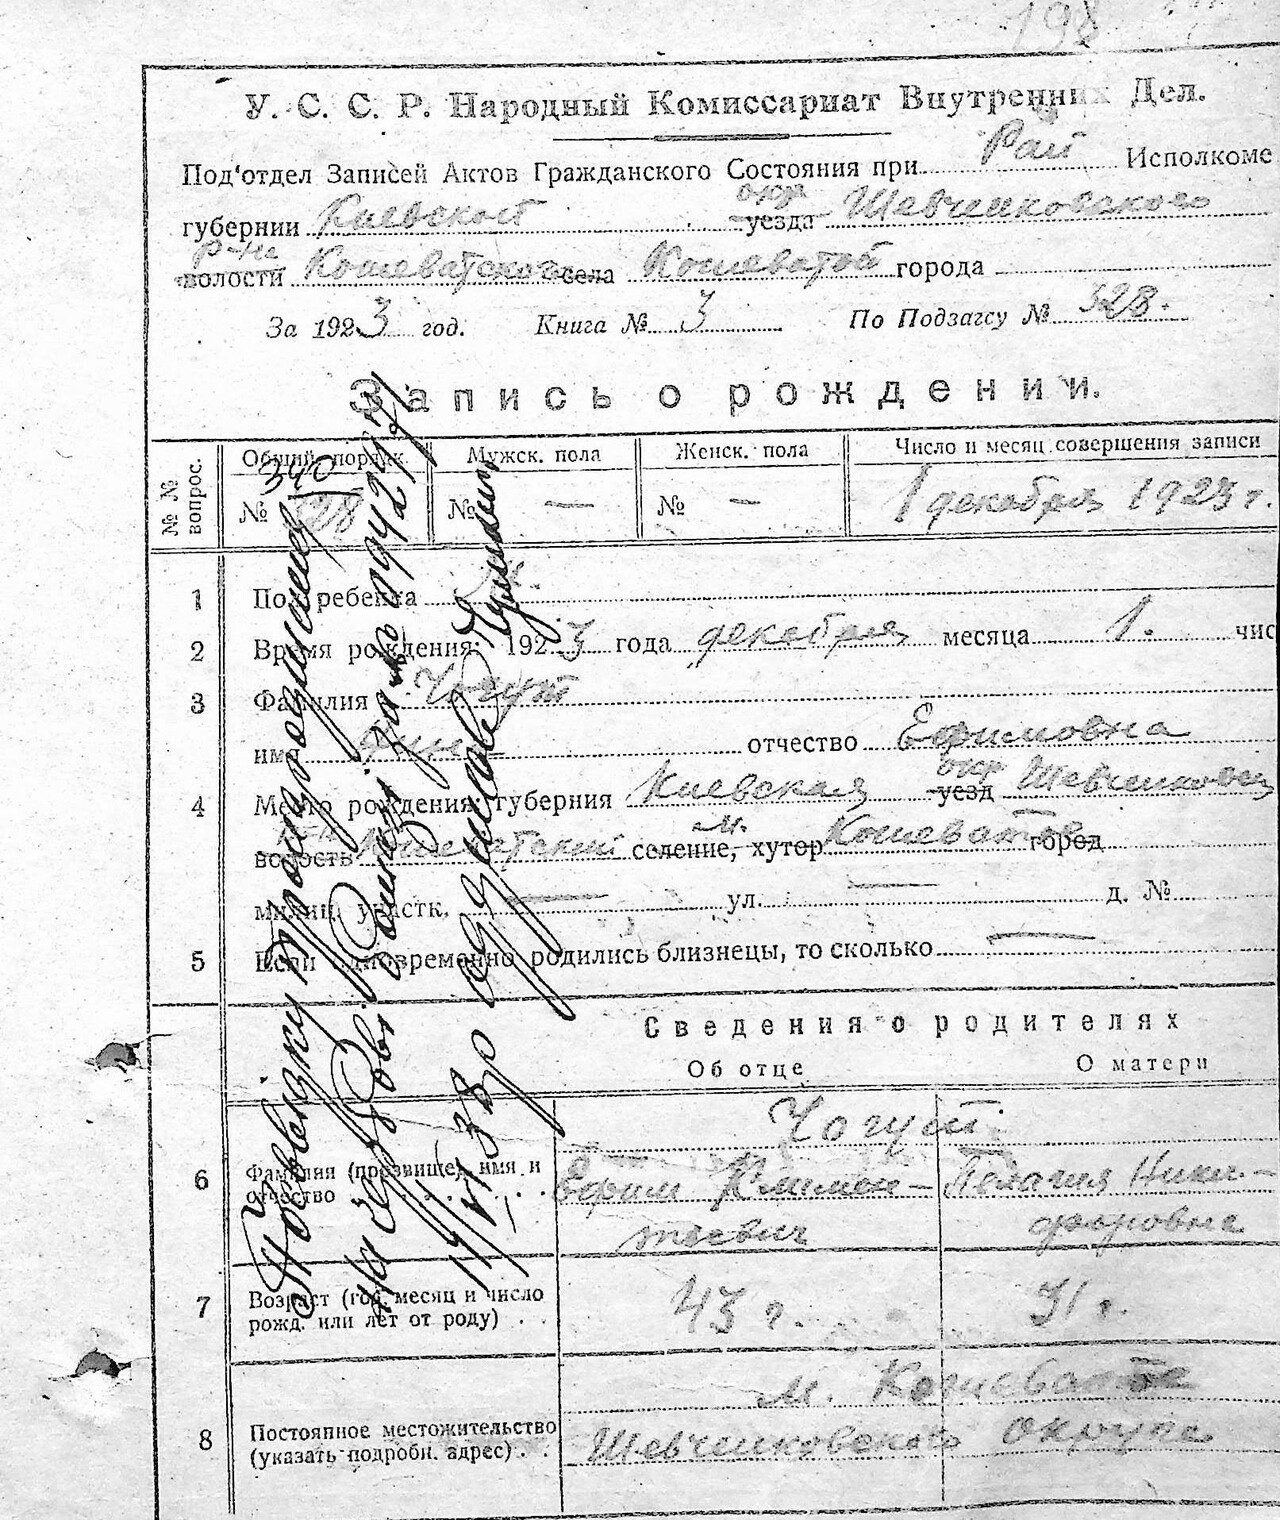 198
У. С. С. Р. Народный Комиссариат Внутренних Дел.
Под'отдел Записей Актов Гражданского Состояния при Рай Исполкоме
губернии Киевской окр уезда Шевченковского
р-на волости Кошеватского села Кошеватой города
За 1923 год. Книга № 3 По Подзагсу № 528.
Запись о рождении.
№ № вопрос.
Общий порядк. Мужск. пола Женск. пола Число и месяц совершения записи
340
№ 528 № — № — 1 декабря 1923 г.
1 Пол ребенка ж.
2 Время рождения: 1923 года декабря месяца 1. чис
3 Фамилия Чогут
имя отчество Ефимовна
4 Место рождения: губерния Киевская окр уезд Шевченковск
р-н волость Кошеватский м. селение, хутор Кошеватое город
милиц. участк. — ул. — д. №
5 Если одновременно родились близнецы, то сколько —
Сведения о родителях
Об отце О матери
Чогут
6 Фамилия (прозвище), имя и отчество
Ефим Климен-
тиевич
Пелагия Ники-
форовна
7 Возраст (год, месяц и число рожд. или лет от роду) 43 г. 31 г.
м. Кошеватое
8 Постоянное местожительство (указать подробн. адрес) Шевченковского округа